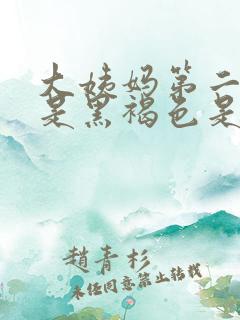 大姨妈第二
是黑褐色是
趙青杉
未经同意禁止转载